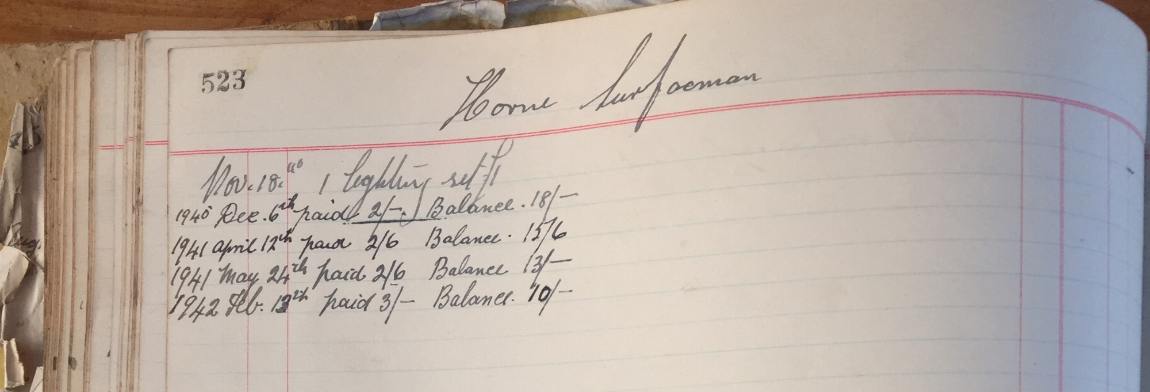 523
Horne Surfaceman
Nov. 18. 40 1 lighting set £1
1940 Dec. 6th paid 2/-. Balance. 18/-
1941 April 12th paid 2/6 Balance. 15/6
1941 May 24th paid 2/6 Balance 13/-
1942 Feb. 13th paid 3/- Balance. 10/-